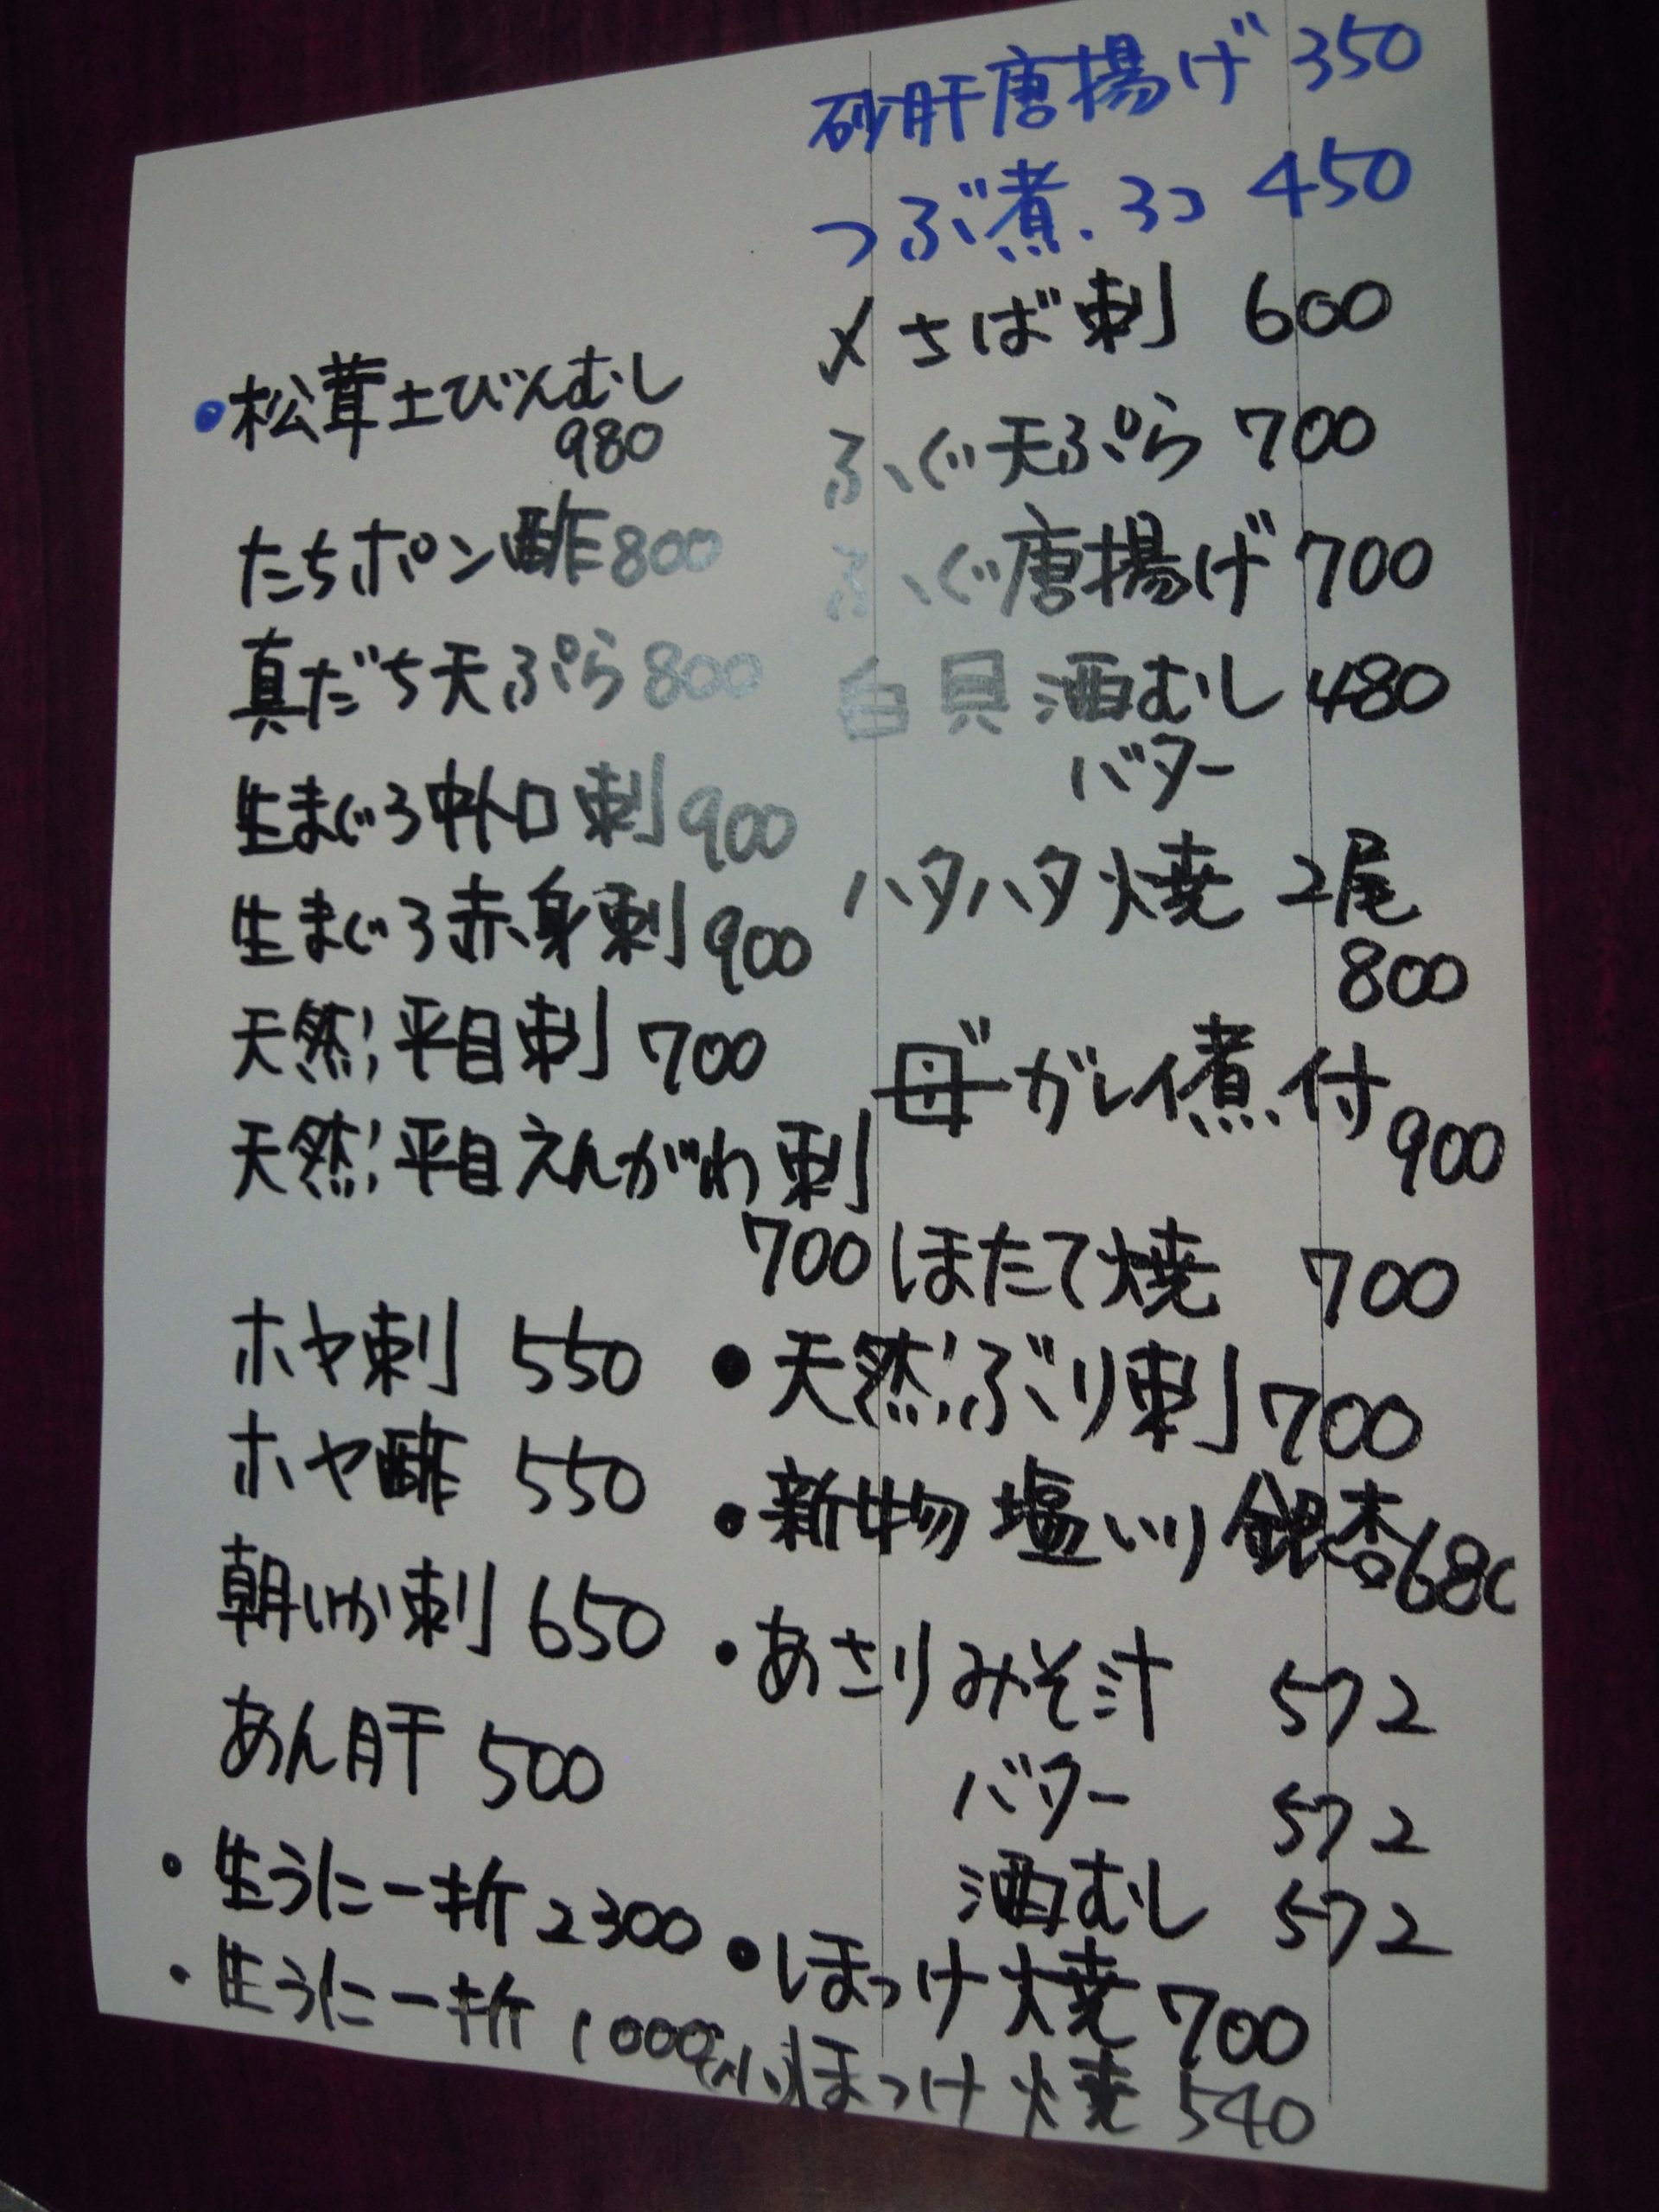 ・松茸土びんむし
980
たちポン酢 800
真だち天ぷら 800
生まぐろ中トロ刺 900
生まぐろ赤身刺 900
天然平目刺 700
天然平目えんがわ刺
700
ホヤ刺 550
ホヤ酢 550
朝いか刺 650
あん肝 500
・生うに一折 2300
・生うに一折 1000
砂肝唐揚げ 350
つぶ煮 3コ 450
〆さば刺 600
ふぐ天ぷら 700
ふぐ唐揚げ 700
白貝酒むし 480
バター
ハタハタ焼 2尾
800
ババガレイ煮付
900
ほたて焼 700
・天然ぶり刺 700
・新物塩いり銀杏 680
・あさりみそ汁 572
バター 572
酒むし 572
・ほっけ焼 700
(小)ほっけ焼 540